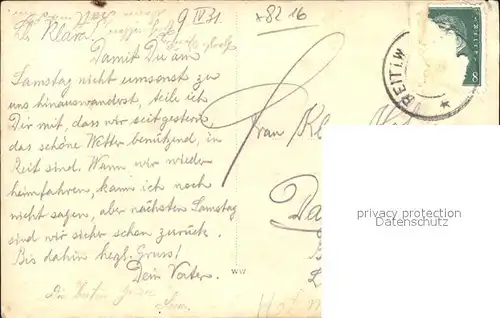 9 IV 31.
*8216
Lb. Klara!
Damit Du am
Samstag nicht umsonst zu
uns hinauswanderst, teile ich
Dir mit, dass wir seit gestern,
das schöne Wetter benützend, in
Zeit sind. Wann wir wieder
heimfahren, kann ich noch
nicht sagen, aber nächsten Samstag
sind wir sicher schon zurück.
Bis dahin hzgl. Gruss!
Dein Vater.
Frau Kl
REIT I.W
8
privacy protection
Datenschutz
WW